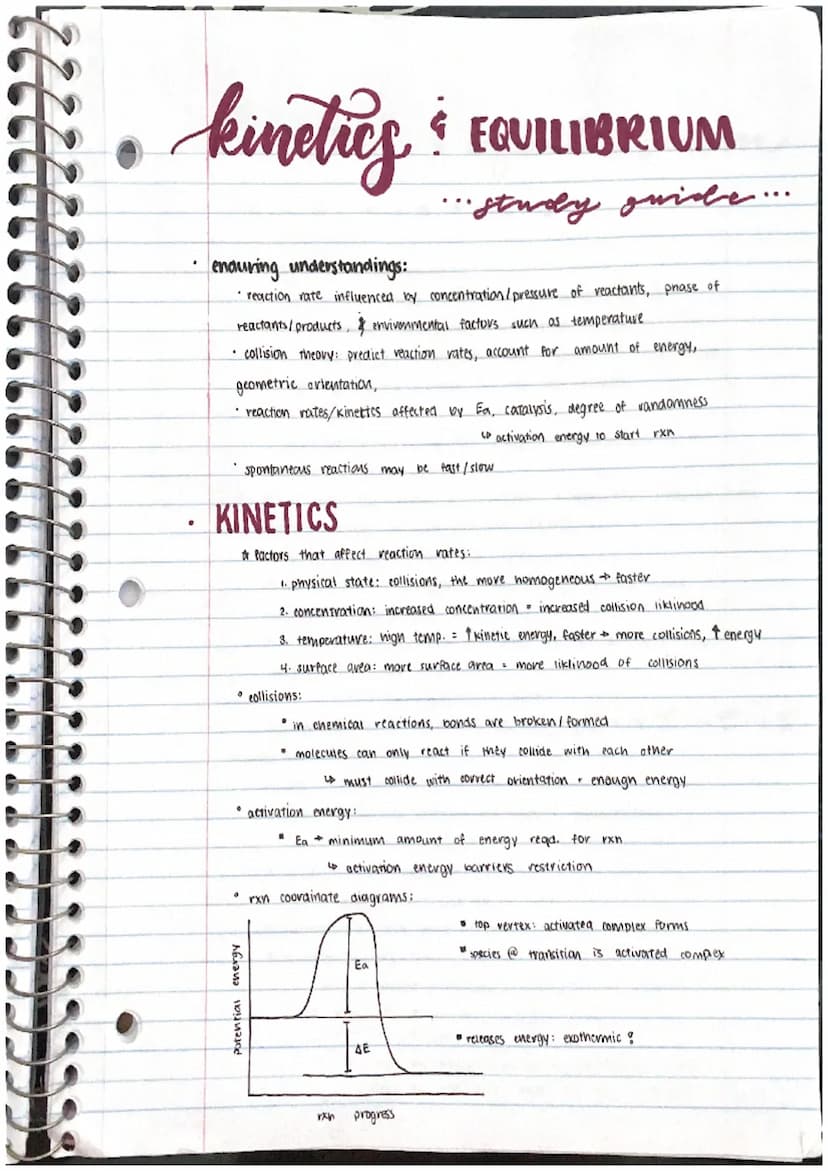 kinetics & EQUILIBRIUM
...study guide...
• enduring understandings:
• reaction rate influenced by concentration/pressure of reactants, phase of
reactants/products, & environmental factors such as temperature
• collision theory: predict reaction rates, account for amount of energy,
geometric orientation,
• reaction rates/kinetics affected by Ea, catalysis, degree of randomness
↳ activation energy to start rxn
• spontaneous reactions may be fast/slow
• KINETICS
☆ factors that affect reaction rates:
1. physical state: collisions, the more homogeneous → faster
2. concentration: increased concentration = increased collision liklihood
3. temperature: high temp. = ↑kinetic energy, faster → more collisions, ↑energy
4. surface area: more surface area = more liklihood of collisions
° collisions:
▪ in chemical reactions, bonds are broken/formed
▪ molecules can only react if they collide with each other
↳ must collide with correct orientation + enough energy
° activation energy:
▪ Ea → minimum amount of energy reqd. for rxn
↳ activation energy barriers restriction
° rxn coordinate diagrams:
▪ top vertex: activated complex forms
▪ species @ transition is activated compex
potential energy
Ea
ΔE
▪ releases energy: exothermic !
rxn progress